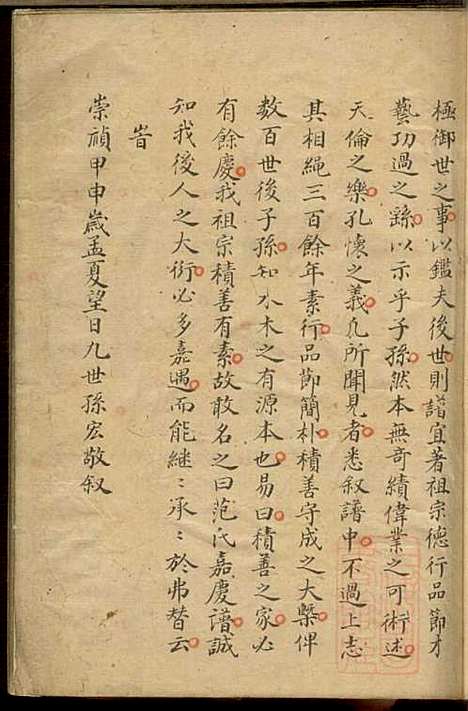 極御世之事以鑑夫後世則譜宜著祖宗德行品節才
藝功過之繇以示乎子孫然本無奇績偉業之可術述
天倫之樂孔懷之義凡所聞見者悉叙譜中不過上志
其相繩三百餘年素行品節簡朴積善守成之大槩俾
数百世後子孫知水木之有源本也易曰積善之家必
有餘慶我祖宗積善有素故敢名之曰范氏嘉慶譜誠
知我後人之大衍必多嘉遇而能継〻承〻於弗替云
旹
崇禎甲申歲孟夏望日九世孫宏敬叙